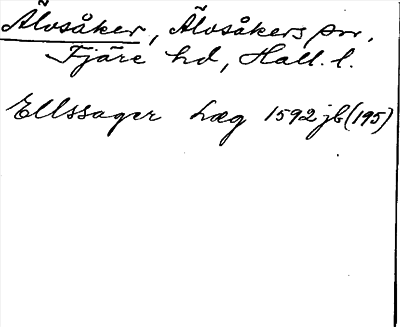 Älvsåker, Älvsåkers sn,
Fjäre hd, Hall. l.
Ellssager Læg 1592 jb (195)